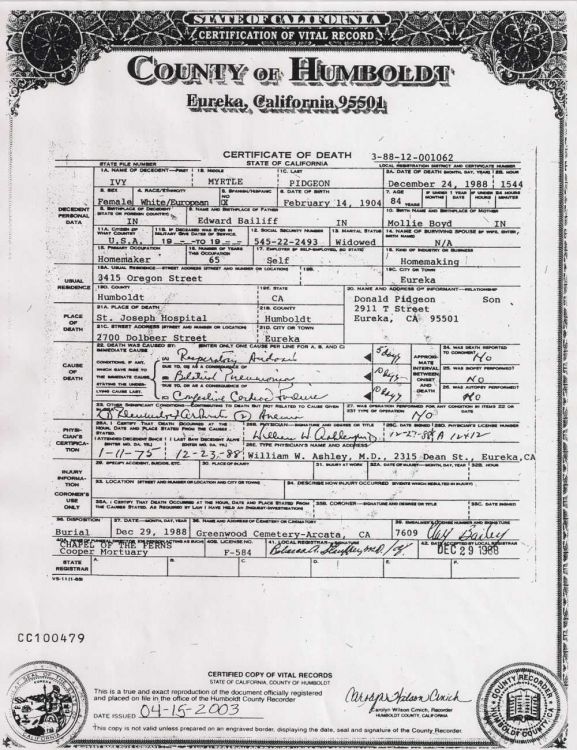 STATE OF CALIFORNIA
CERTIFICATION OF VITAL RECORD
COUNTY OF HUMBOLDT
Eureka, California 95501
CERTIFICATE OF DEATH
STATE OF CALIFORNIA
3-88-12-001062
STATE FILE NUMBER
LOCAL REGISTRATION DISTRICT AND CERTIFICATE NUMBER
DECEDENT PERSONAL DATA
1A. NAME OF DECEDENT—FIRST
1B. MIDDLE
1C. LAST
2A. DATE OF DEATH (MONTH, DAY, YEAR)
2B. HOUR
IVY
MYRTLE
PIDGEON
December 24, 1988
1544
3. SEX
4. RACE/ETHNICITY
5. SPANISH/HISPANIC
6. DATE OF BIRTH
7. AGE
IF UNDER 1 YEAR
IF UNDER 24 HOURS
Female
White/European
NO
February 14, 1904
84
YEARS
MONTHS
DAYS
HOURS
MINUTES
8. BIRTHPLACE OF DECEDENT (STATE OR FOREIGN COUNTRY)
9. NAME AND BIRTHPLACE OF FATHER
10. BIRTH NAME AND BIRTHPLACE OF MOTHER
IN
Edward Bailiff
IN
Mollie Boyd
IN
11A. CITIZEN OF WHAT COUNTRY
11B. IF DECEASED WAS EVER IN MILITARY GIVE DATES OF SERVICE.
12. SOCIAL SECURITY NUMBER
13. MARITAL STATUS
14. NAME OF SURVIVING SPOUSE (IF WIFE, ENTER BIRTH NAME)
U.S.A.
19 -- TO 19 --
545-22-2493
Widowed
N/A
15. PRIMARY OCCUPATION
16. NUMBER OF YEARS THIS OCCUPATION
17. EMPLOYER (IF SELF-EMPLOYED, SO STATE)
18. KIND OF INDUSTRY OR BUSINESS
Homemaker
65
Self
Homemaking
USUAL RESIDENCE
19A. USUAL RESIDENCE—STREET ADDRESS (STREET AND NUMBER OR LOCATION)
19B.
19C. CITY OR TOWN
3415 Oregon Street
Eureka
19D. COUNTY
19E. STATE
20. NAME AND ADDRESS OF INFORMANT—RELATIONSHIP
Humboldt
CA
Donald Pidgeon Son
2911 T Street
Eureka, CA 95501
PLACE OF DEATH
21A. PLACE OF DEATH
21B. COUNTY
St. Joseph Hospital
Humboldt
21C. STREET ADDRESS (STREET AND NUMBER OR LOCATION)
21D. CITY OR TOWN
2700 Dolbeer Street
Eureka
CAUSE OF DEATH
22. DEATH WAS CAUSED BY: (ENTER ONLY ONE CAUSE PER LINE FOR A, B, AND C)
IMMEDIATE CAUSE
CONDITIONS, IF ANY, WHICH GAVE RISE TO THE IMMEDIATE CAUSE STATING THE UNDERLYING CAUSE LAST.
Respiratory
DUE TO, OR AS A CONSEQUENCE OF
Pneumonia
DUE TO, OR AS A CONSEQUENCE OF
Congestive Cardiac Failure
APPROXIMATE INTERVAL BETWEEN ONSET AND DEATH
24. WAS DEATH REPORTED TO CORONER?
No
25. WAS BIOPSY PERFORMED?
No
26. WAS AUTOPSY PERFORMED?
No
23. OTHER SIGNIFICANT CONDITIONS—CONTRIBUTING TO DEATH BUT NOT RELATED TO CAUSE GIVEN
27. WAS OPERATION PERFORMED FOR ANY CONDITION IN ITEMS 22 OR 23? TYPE OF OPERATION
No
PHYSICIAN'S CERTIFICATION
28A. I CERTIFY THAT DEATH OCCURRED AT THE HOUR, DATE AND PLACE STATED FROM THE CAUSES STATED.
28B. PHYSICIAN—SIGNATURE AND DEGREE OR TITLE
28C. DATE SIGNED
28D. PHYSICIAN'S LICENSE NUMBER
12-27-88
I ATTENDED DECEDENT SINCE
I LAST SAW DECEDENT ALIVE
28E. TYPE PHYSICIAN'S NAME AND ADDRESS
1-11-75
12-23-88
William W. Ashley, M.D., 2315 Dean St., Eureka, CA
INJURY INFORMATION
29. SPECIFY ACCIDENT, SUICIDE, ETC.
30. PLACE OF INJURY
31. INJURY AT WORK
32A. DATE OF INJURY—MONTH, DAY, YEAR
32B. HOUR
33. LOCATION (STREET AND NUMBER OR LOCATION AND CITY OR TOWN)
34. DESCRIBE HOW INJURY OCCURRED (EVENTS WHICH RESULTED IN INJURY)
CORONER'S USE ONLY
35A. I CERTIFY THAT DEATH OCCURRED AT THE HOUR, DATE AND PLACE STATED FROM THE CAUSES STATED, AS REQUIRED BY LAW I HAVE HELD AN INQUEST-INVESTIGATION
35B. CORONER—SIGNATURE AND DEGREE OR TITLE
35C. DATE SIGNED
36. DISPOSITION
37. DATE—MONTH, DAY, YEAR
38. NAME AND ADDRESS OF CEMETERY OR CREMATORY
39. EMBALMER'S LICENSE NUMBER AND SIGNATURE
Burial
Dec 29, 1988
Greenwood Cemetery-Arcata, CA
7609
CHAPEL OF THE FERNS
Cooper Mortuary
40B. LICENSE NO.
F-584
41. LOCAL REGISTRAR—SIGNATURE
42. DATE ACCEPTED BY LOCAL REGISTRAR
DEC 29 1988
STATE REGISTRAR
A.
B.
C.
D.
E.
F.
CC100479
CERTIFIED COPY OF VITAL RECORDS
STATE OF CALIFORNIA, COUNTY OF HUMBOLDT
This is a true and exact reproduction of the document officially registered
and placed on file in the office of the Humboldt County Recorder.
DATE ISSUED 04-15-2003
Carolyn Wilson Crnich, Recorder
HUMBOLDT COUNTY, CALIFORNIA
This copy is not valid unless prepared on an engraved border, displaying the date, seal and signature of the County Recorder.
COUNTY RECORDER
HUMBOLDT COUNTY, CA